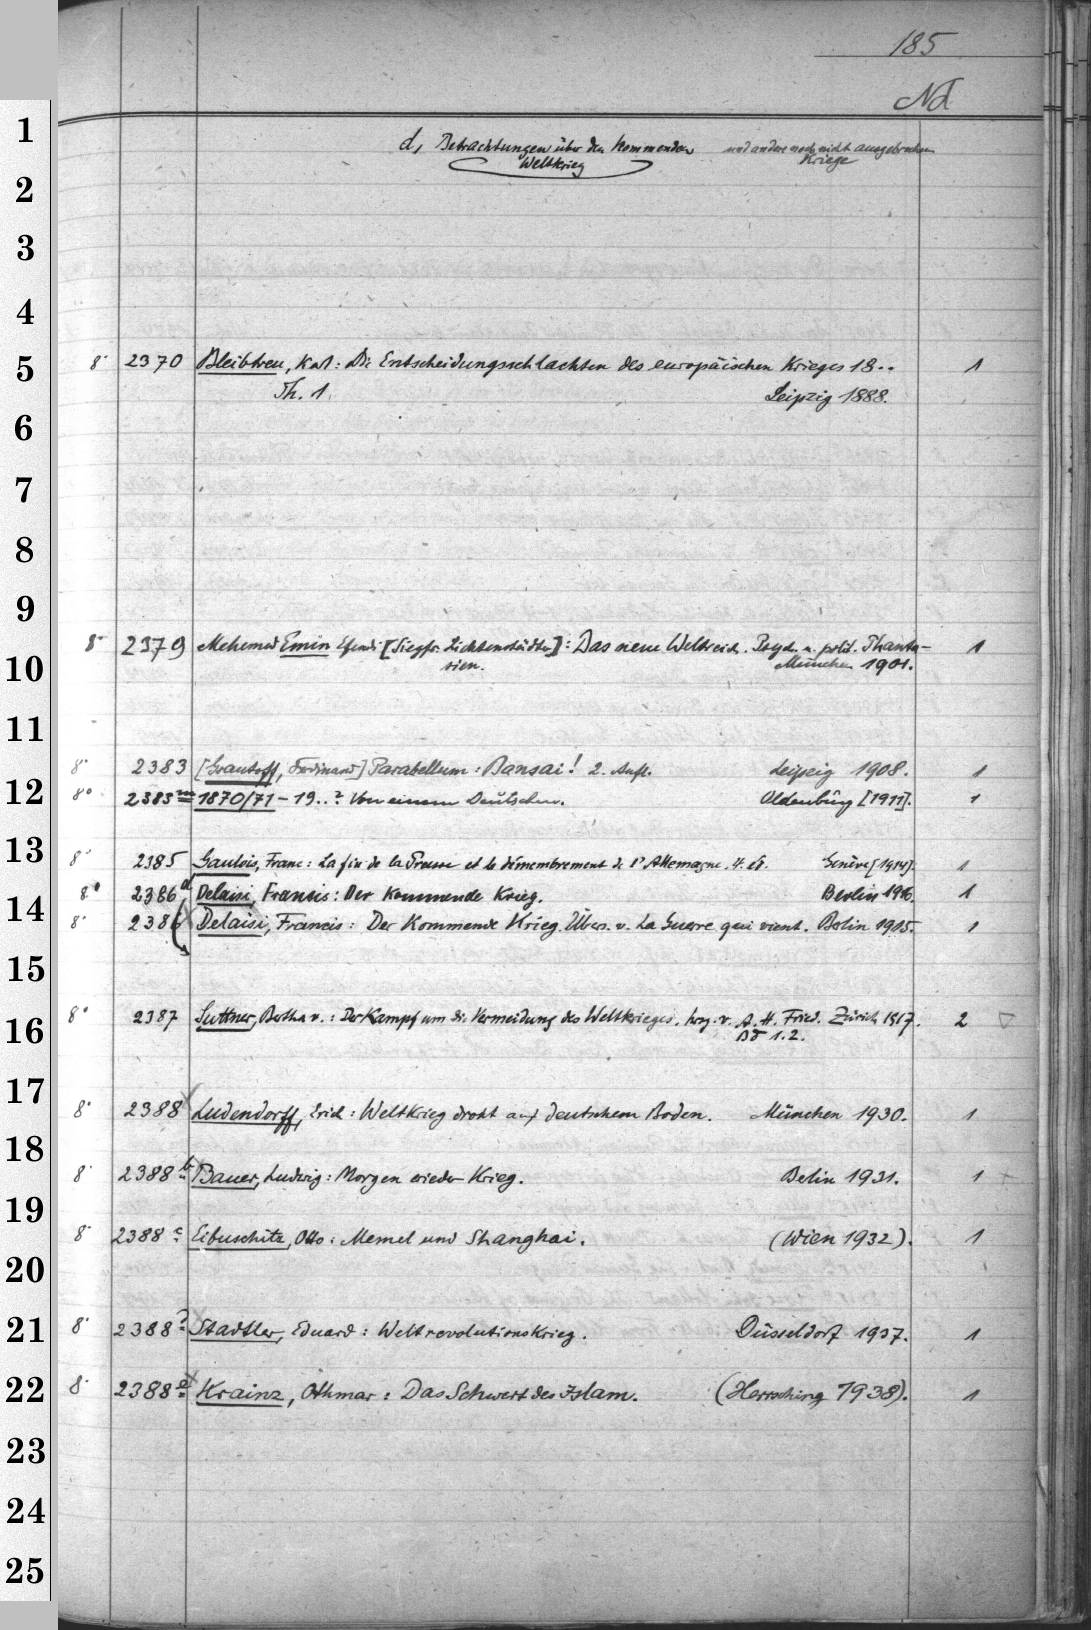 185
Nd
1
d, Betrachtungen über den kommenden und andere noch nicht ausgebrochene
Weltkrieg Kriege
2
3
4
5 8° 2370 Bleibtreu, Karl: Die Entscheidungsschlachten des europäischen Krieges 18.. 1
Th. 1. Leipzig 1888.
6
7
8
9
8° 2379 Mehemed Emin Efendi [Siegfr. Lichtenstädter]: Das neue Weltreich. Psych. u. polit. Phanta- 1
10 sien. München 1901.
11
8° 2383 [Grautoff, Ferdinand] Parabellum: Bansai! 2. Aufl. Leipzig 1908. 1
12 8° 2383m 1870/71 - 19..? Von einem Deutschen. Oldenburg [1911]. 1
13 8° 2385 Gaulois, Franc: La fin de la Prusse et le démembrement de l'Allemagne. 4. éd. Genève [1914]. 1
8° 2386d Delaisi, Francis: Der kommende Krieg. Berlin 1916. 1
14 8° 2386 Delaisi, Francis: Der Kommende Krieg. Übers. v. La Guerre qui vient. Berlin 1915. 1
15
16 8° 2387 Suttner, Bertha v.: Der Kampf um die Vermeidung des Weltkrieges. hrg. v. A. H. Fried. Zürich 1917. 2
Bd 1.2.
17 8° 2388 Ludendorff, Erich: Weltkrieg droht auf deutschem Boden. München 1930. 1
18 8° 2388b Bauer, Ludwig: Morgen wieder Krieg. Berlin 1931. 1
19 8° 2388c Eibuschitz, Otto: Memel und Shanghai. (Wien 1932). 1
20
21 8° 2388 Stadtler, Eduard: Weltrevolutionskrieg. Düsseldorf 1937. 1
22 8° 2388 Krainz, Othmar: Das Schwert des Islam. (Herrsching 1938). 1
23
24
25